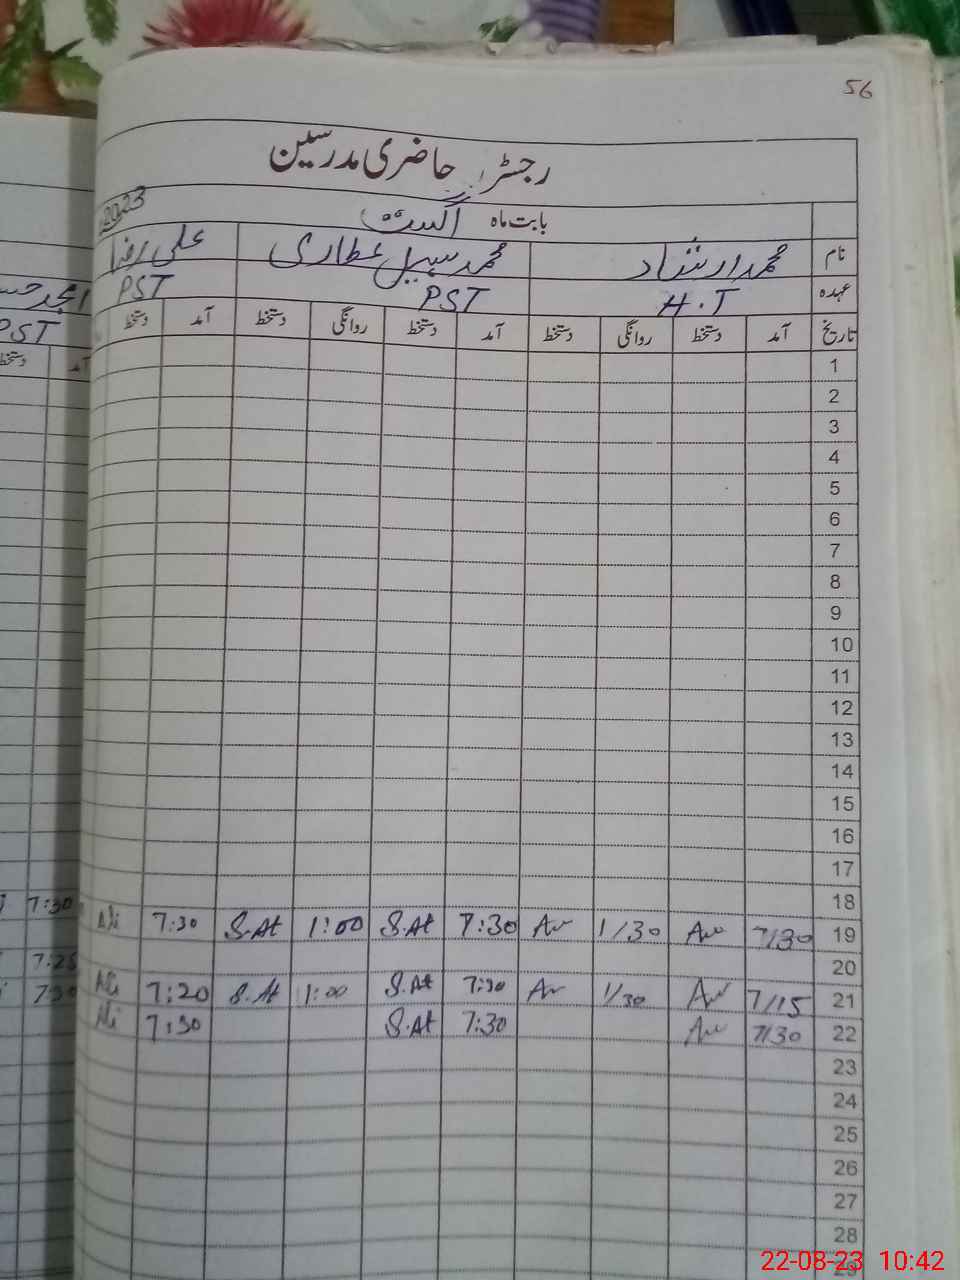 56
رجسٹر حاضری مدرسین
بابت ماہ اگست 2023
نام محمد ارشاد محمد سہیل عطاری علی رضا
عہدہ H.T PST PST
PST
تاریخ آمد دستخط روانگی دستخط آمد دستخط روانگی دستخط آمد دستخط
آمد دستخط
1
2
3
4
5
6
7
8
9
10
11
12
13
14
15
16
17
18
19 7/30 1/30 7:30 S.At 1:00 S.At 7:30 Ali 7:30
20 7:25
21 7/15 1/30 7:30 S.At 1:00 S.At 7:20 Ali 7:30
22 7/30 7:30 S.At 7:30 Ali
23
24
25
26
27
28
29
22-08-23 10:42